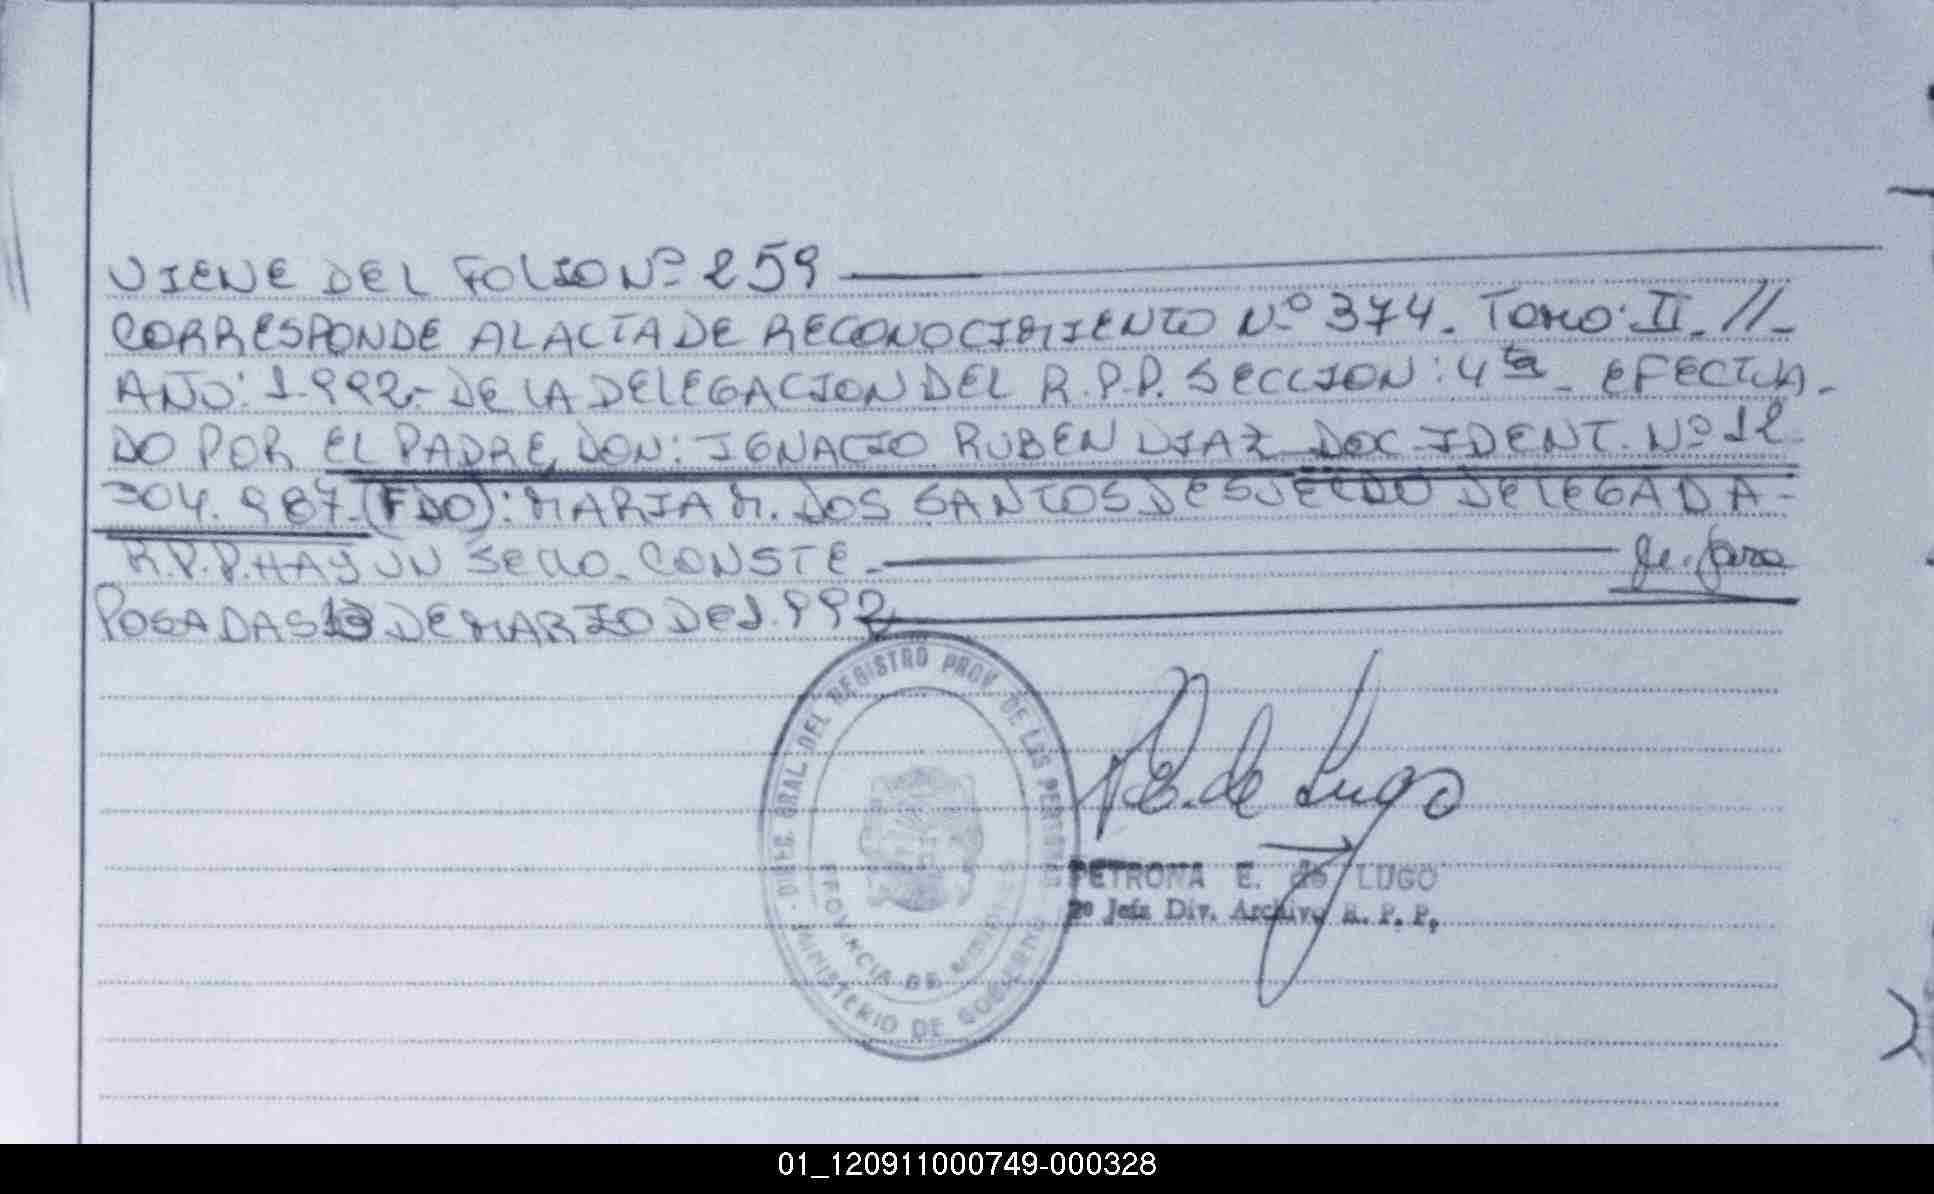 VIENE DEL FOLIO Nº 259
CORRESPONDE AL ACTA DE RECONOCIMIENTO Nº 374. TOMO: II. //-
AÑO: 1.992.- DE LA DELEGACION DEL R.P.P. SECCION: 4ta - EFECTUA-
DO POR EL PADRE DON: IGNACIO RUBEN DIAZ DOC. IDENT. Nº 12
304.987.- (FDO): MARIA M. DOS SANTOS DE SUELDO DELEGADA-
R.P.P. HAY UN SELLO. CONSTE.-
POSADAS 13 DE MARZO DE 1.992
DIREC. GRAL. DEL REGISTRO PROV. DE LAS PERSONAS
PROVINCIA DE MISIONES
MINISTERIO DE GOBIERNO
P.E. de Lugo
PETRONA E. de LUGO
2º Jefe Div. Archivo R. P. P.
01_120911000749-000328